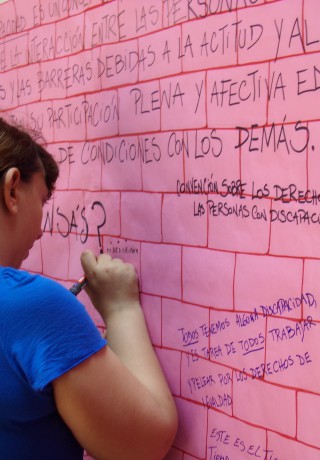 ACIDAD ES UN CONCE
LA INTERACCIÓN ENTRE LAS PERSONAS
Y LAS BARRERAS DEBIDAS A LA ACTITUD Y AL
SU PARTICIPACIÓN PLENA Y AFECTIVA E
DE CONDICIONES CON LOS DEMÁS.
CONVENCIÓN SOBRE LOS DERECHO
LAS PERSONAS CON DISCAPACI
NSAS?
TODOS TENEMOS ALGUNA DISCAPACIDAD,
Y ES TAREA DE TODOS TRABAJAR
Y PELEAR POR LOS DERECHOS DE
IGUALDAD
ESTE ES EL TI